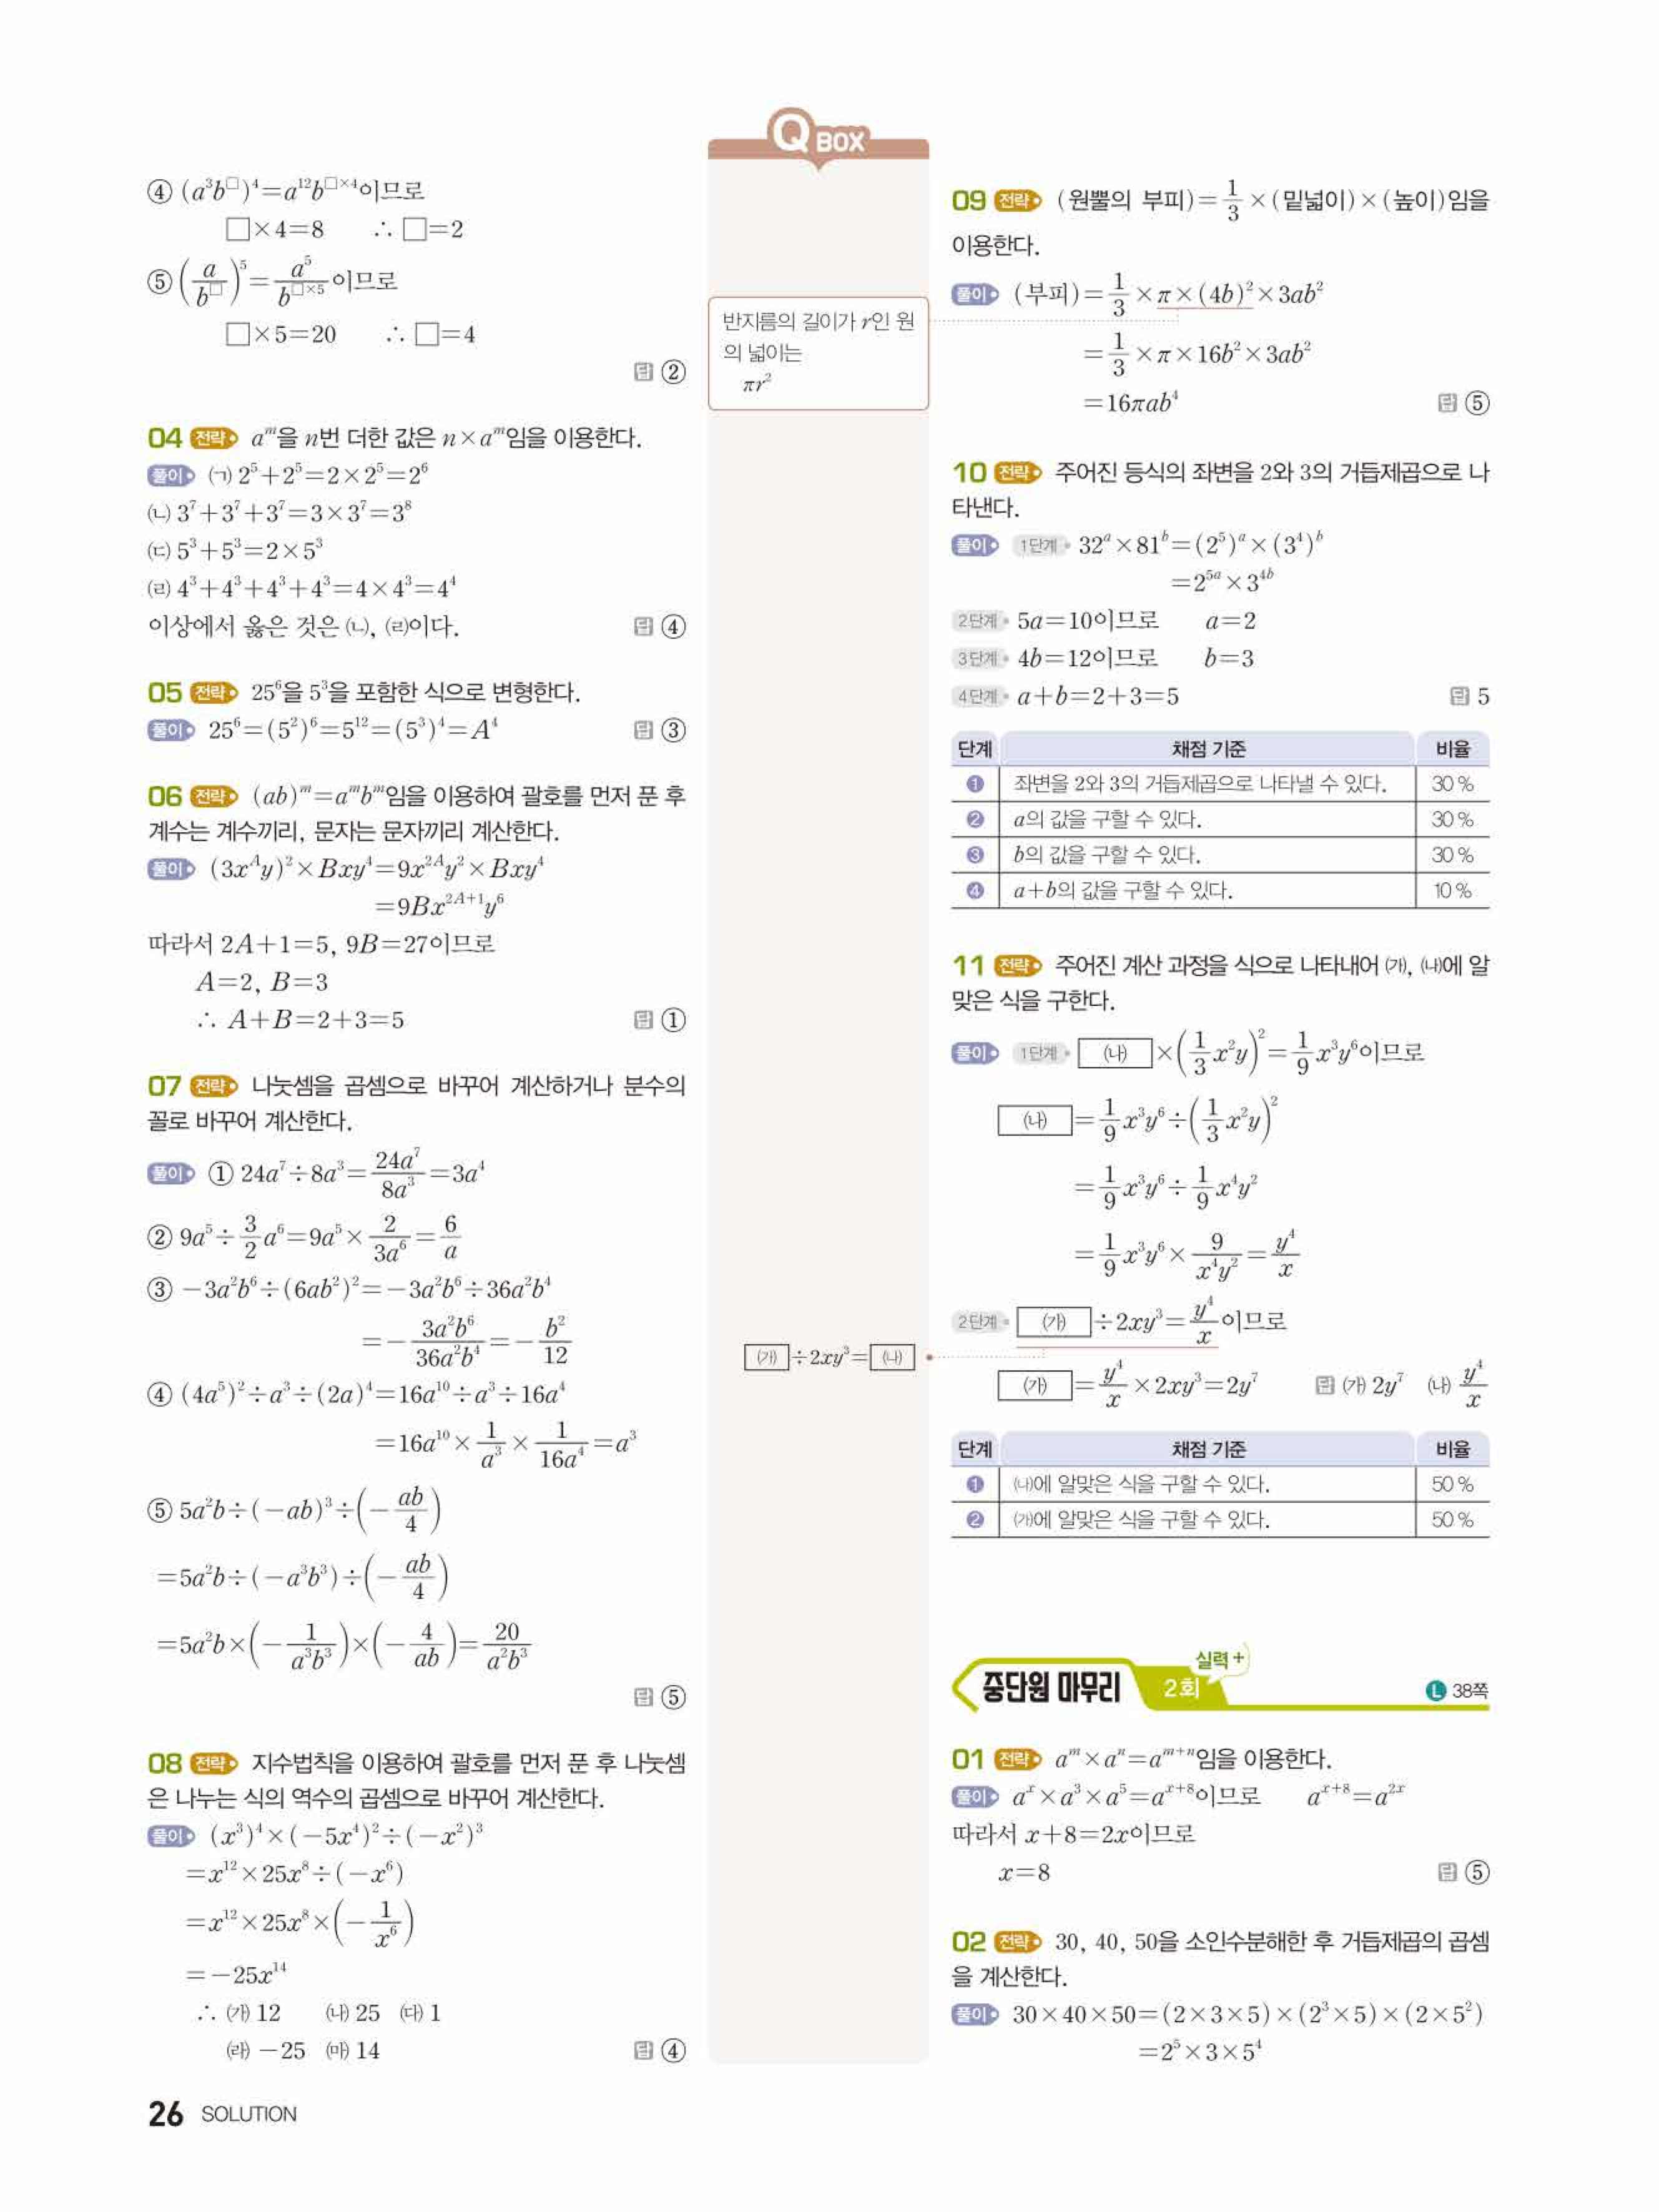 ④ (a³b^□)⁴=a¹²b^(□×4)이므로
□×4=8  ∴ □=2
⑤ (a/b^□)⁵=a⁵/b^(□×5)이므로
□×5=20  ∴ □=4
답 ②
04 전략 a^m을 n번 더한 값은 n×a^m임을 이용한다.
풀이 ㈀ 2⁵+2⁵=2×2⁵=2⁶
㈁ 3⁷+3⁷+3⁷=3×3⁷=3⁸
㈂ 5³+5³=2×5³
㈃ 4³+4³+4³+4³=4×4³=4⁴
이상에서 옳은 것은 ㈁, ㈃이다. 답 ④
05 전략 25⁶을 5³을 포함한 식으로 변형한다.
풀이 25⁶=(5²)⁶=5¹²=(5³)⁴=A⁴ 답 ③
06 전략 (ab)^m=a^m b^m임을 이용하여 괄호를 먼저 푼 후
계수는 계수끼리, 문자는 문자끼리 계산한다.
풀이 (3x^A y)²×Bxy⁴=9x^(2A)y²×Bxy⁴
=9Bx^(2A+1)y⁶
따라서 2A+1=5, 9B=27이므로
A=2, B=3
∴ A+B=2+3=5 답 ①
07 전략 나눗셈을 곱셈으로 바꾸어 계산하거나 분수의
꼴로 바꾸어 계산한다.
풀이 ① 24a⁷÷8a³=24a⁷/8a³=3a⁴
② 9a⁵÷3/2 a⁶=9a⁵×2/3a⁶=6/a
③ -3a²b⁶÷(6ab²)²=-3a²b⁶÷36a²b⁴
=-3a²b⁶/36a²b⁴=-b²/12
④ (4a⁵)²÷a³÷(2a)⁴=16a¹⁰÷a³÷16a⁴
=16a¹⁰×1/a³×1/16a⁴=a³
⑤ 5a²b÷(-ab)³÷(-ab/4)
=5a²b÷(-a³b³)÷(-ab/4)
=5a²b×(-1/a³b³)×(-4/ab)=20/a²b³
답 ⑤
08 전략 지수법칙을 이용하여 괄호를 먼저 푼 후 나눗셈
은 나누는 식의 역수의 곱셈으로 바꾸어 계산한다.
풀이 (x³)⁴×(-5x⁴)²÷(-x²)³
=x¹²×25x⁸÷(-x⁶)
=x¹²×25x⁸×(-1/x⁶)
=-25x¹⁴
∴ ㈎ 12 ㈏ 25 ㈐ 1
㈑ -25 ㈒ 14 답 ④
Q BOX
반지름의 길이가 r인 원
의 넓이는
πr²
㈎÷2xy³=㈏
09 전략 (원뿔의 부피)=1/3×(밑넓이)×(높이)임을
이용한다.
풀이 (부피)=1/3×π×(4b)²×3ab²
=1/3×π×16b²×3ab²
=16πab⁴ 답 ⑤
10 전략 주어진 등식의 좌변을 2와 3의 거듭제곱으로 나
타낸다.
풀이 1단계 32^a×81^b=(2⁵)^a×(3⁴)^b
=2^(5a)×3^(4b)
2단계 5a=10이므로 a=2
3단계 4b=12이므로 b=3
4단계 a+b=2+3=5 답 5
단계 채점 기준 비율
❶ 좌변을 2와 3의 거듭제곱으로 나타낼 수 있다. 30 %
❷ a의 값을 구할 수 있다. 30 %
❸ b의 값을 구할 수 있다. 30 %
❹ a+b의 값을 구할 수 있다. 10 %
11 전략 주어진 계산 과정을 식으로 나타내어 ㈎, ㈏에 알
맞은 식을 구한다.
풀이 1단계 ㈏×(1/3 x²y)²=1/9 x³y⁶이므로
㈏=1/9 x³y⁶÷(1/3 x²y)²
=1/9 x³y⁶÷1/9 x⁴y²
=1/9 x³y⁶×9/x⁴y²=y⁴/x
2단계 ㈎÷2xy³=y⁴/x이므로
㈎=y⁴/x×2xy³=2y⁷ 답 ㈎ 2y⁷ ㈏ y⁴/x
단계 채점 기준 비율
❶ ㈏에 알맞은 식을 구할 수 있다. 50 %
❷ ㈎에 알맞은 식을 구할 수 있다. 50 %
중단원 마무리 2회 실력+ L 38쪽
01 전략 a^m×a^n=a^(m+n)임을 이용한다.
풀이 a^x×a³×a⁵=a^(x+8)이므로 a^(x+8)=a^(2x)
따라서 x+8=2x이므로
x=8 답 ⑤
02 전략 30, 40, 50을 소인수분해한 후 거듭제곱의 곱셈
을 계산한다.
풀이 30×40×50=(2×3×5)×(2³×5)×(2×5²)
=2⁵×3×5⁴
26 SOLUTION